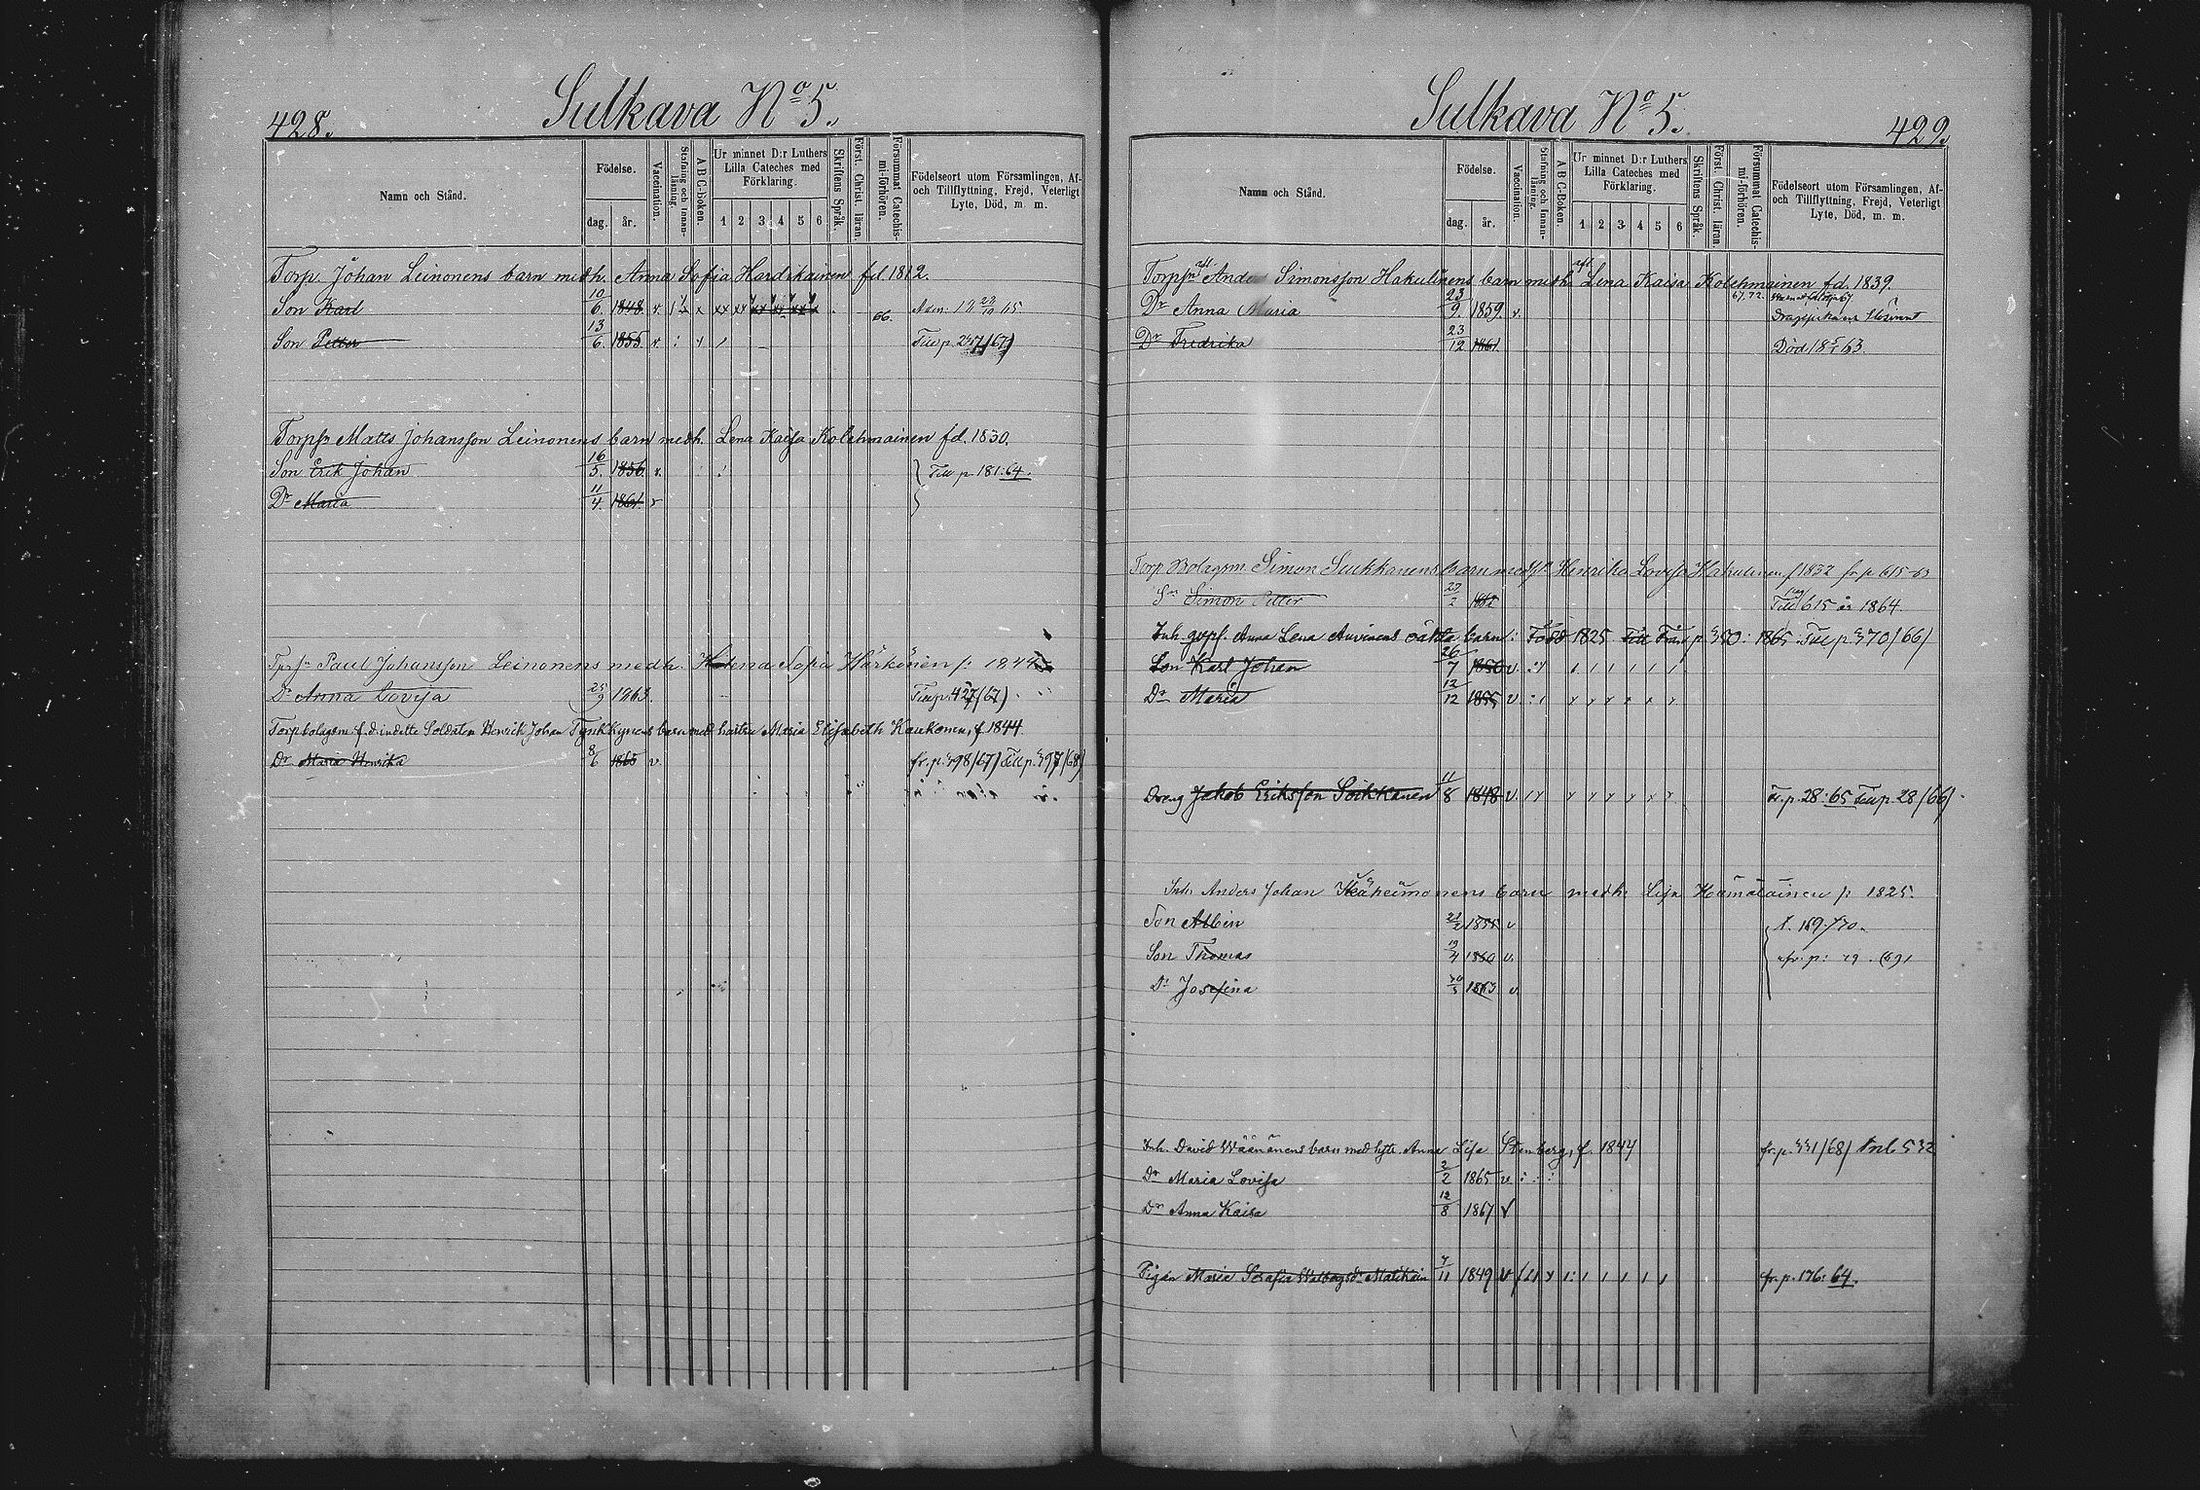 428.
Sulkava No 5.
Namn och Stånd.
Födelse.
dag. år.
Vaccination.
Stafning och Innan-läsning.
A B C-Boken.
Ur minnet D:r Luthers Lilla Cateches med Förklaring.
1 2 3 4 5 6
Skriftens Språk.
Först. Christ. läran.
Försummat Catechis-mi-förhören.
Födelseort utom Församlingen, Af- och Tillflyttning, Frejd, Veterligt Lyte, Död, m. m.
Torp. Johan Leinonens barn medh. Anna Sofia Hardikainen fd. 1812.
Son Karl 19/6. 1848. 66.
Son Petter 13/6. 1855. Till p. 247/67)
Torpsn Matts Johansson Leinonens barn medh. Lena Kaisa Kolehmainen fd. 1830.
Son Erik Johan 16/5. 1856. Till p. 181:64.
Dr Maria 11/4. 1861.
Paul Johansson Leinonens medh. Helena Sofia Härkönen f: 1844
Dr Anna Lovisa 25/9 1863. Till p. 427/67)
Torpbolagsm f. d. indelte Soldaten Henrich Johan Tynkkynens barn med hustru Maria Elisabeth Kaukonen, f 1844.
Dr Maria Henrika 8/6 1865 v. fr. p. 398/67) Till p. 397/68)
Sulkava No 5.
429.
Namn och Stånd.
Födelse.
dag. år.
Vaccination.
Stafning och Innan-läsning.
A B C-Boken.
Ur minnet D:r Luthers Lilla Cateches med Förklaring.
1 2 3 4 5 6
Skriftens Språk.
Först. Christ. läran.
Försummat Catechis-mi-förhören.
Födelseort utom Församlingen, Af- och Tillflyttning, Frejd, Veterligt Lyte, Död, m. m.
Anders Simonsson Hakulinens barn medh. Lena Kaisa Kolehmainen fd. 1839.
Dr Anna Maria 23/9. 1859. v. 67.72.
Dr Fredrika 23/12 1861. Död 18 5/1 63.
Torp Bolagsm Simon Suikkanens barn med h. Henrika Lovisa Hakulinen f 1832 fr p 615-63
Sn Simon Petter 27/2 1862 Till 615 år 1864.
Inh. gvpf. Anna Lena Auvinens oäkta barn: Född 1825 Till Från p 350: 1865. Till p 370/66)
Son Karl Johan 26/7 1850 v
Dr Maria 12/12 1855 v
Dreng Jakob Eriksson Soikkanen 11/8 1848 v fr. p. 28:65 Till p. 28/66)
Inh: Anders Johan barn medh: Lisa Hämäläinen f: 1825.
Son Albin 1855 v
Son Thomas 19/4 1860 v.
Dr Josefina 1863 v.
Inh. David Väänänens barn med hstr. Anna Lisa Stenberg, f. 1844 fr. p. 331/68)
Dr Maria Lovisa 2/2 1865
Dr Anna Kaisa 12/8 1867 v
Pigan Maria Serafia 7/11 1849 v fr. p. 176:64.